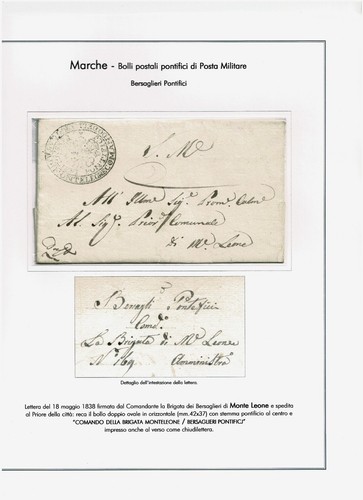 Marche - Bolli postali pontifici di Posta Militare
Bersaglieri Pontifici
S. M.
All' Illmo Sigr
Al Sigr Prior Comunale
di Mte Leone
Bersagli Pontificii
Comdo
La Brigata di Mte Leone
Dettaglio dell'intestazione della lettera.
Lettera del 18 maggio 1838 firmata dal Comandante la Brigata dei Bersaglieri di Monte Leone e spedita
al Priore della città: reca il bollo doppio ovale in orizzontale (mm.42x37) con stemma pontificio al centro e
"COMANDO DELLA BRIGATA MONTELEONE / BERSAGLIERI PONTIFICJ"
impresso anche al verso come chiudilettera.